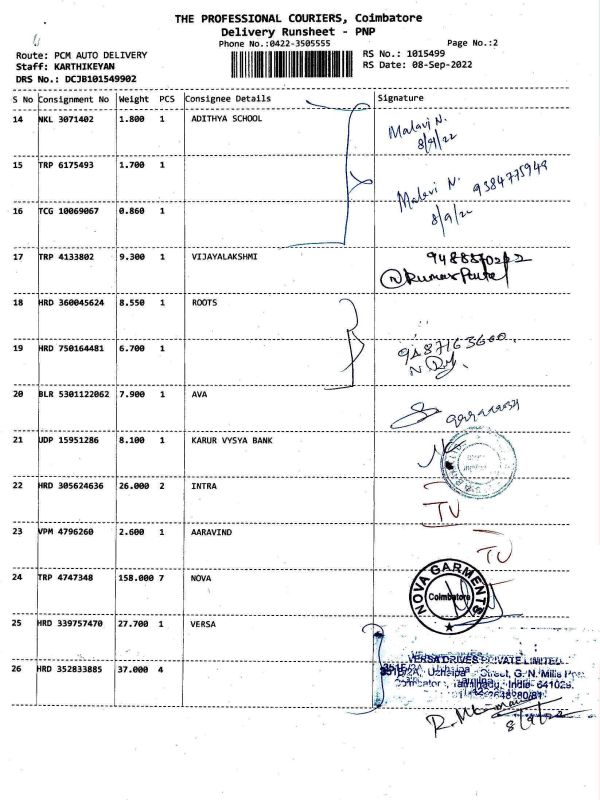 THE PROFESSIONAL COURIERS, Coimbatore
Delivery Runsheet - PNP
Phone No.:0422-3505555
Page No.:2
Route: PCM AUTO DELIVERY
RS No.: 1015499
Staff: KARTHIKEYAN
RS Date: 08-Sep-2022
DRS No.: DCJB101549902
S No Consignment No Weight PCS Consignee Details Signature
14 NKL 3071402 1.800 1 ADITHYA SCHOOL
Malavi N.
8/9/22
15 TRP 6175493 1.700 1
Malavi N. 9384775949
8/9/22
16 TCG 10069067 0.860 1
17 TRP 4133802 9.300 1 VIJAYALAKSHMI
18 HRD 360045624 8.550 1 ROOTS
19 HRD 750164481 6.700 1
9487163600
20 BLR 5301122062 7.900 1 AVA
21 UDP 15951286 8.100 1 KARUR VYSYA BANK
22 HRD 305624636 26.000 2 INTRA
TV
23 VPM 4796260 2.600 1 AARAVIND
TV
24 TRP 4747348 158.000 7 NOVA
NOVA GARMENTS
Coimbatore
25 HRD 339757470 27.700 1 VERSA
VERSA DRIVES PRIVATE LIMITED
26 HRD 352833885 37.000 4
Street, G. N. Mills Post
Coimbatore, Tamilnadu, India- 641029.
8/9/22